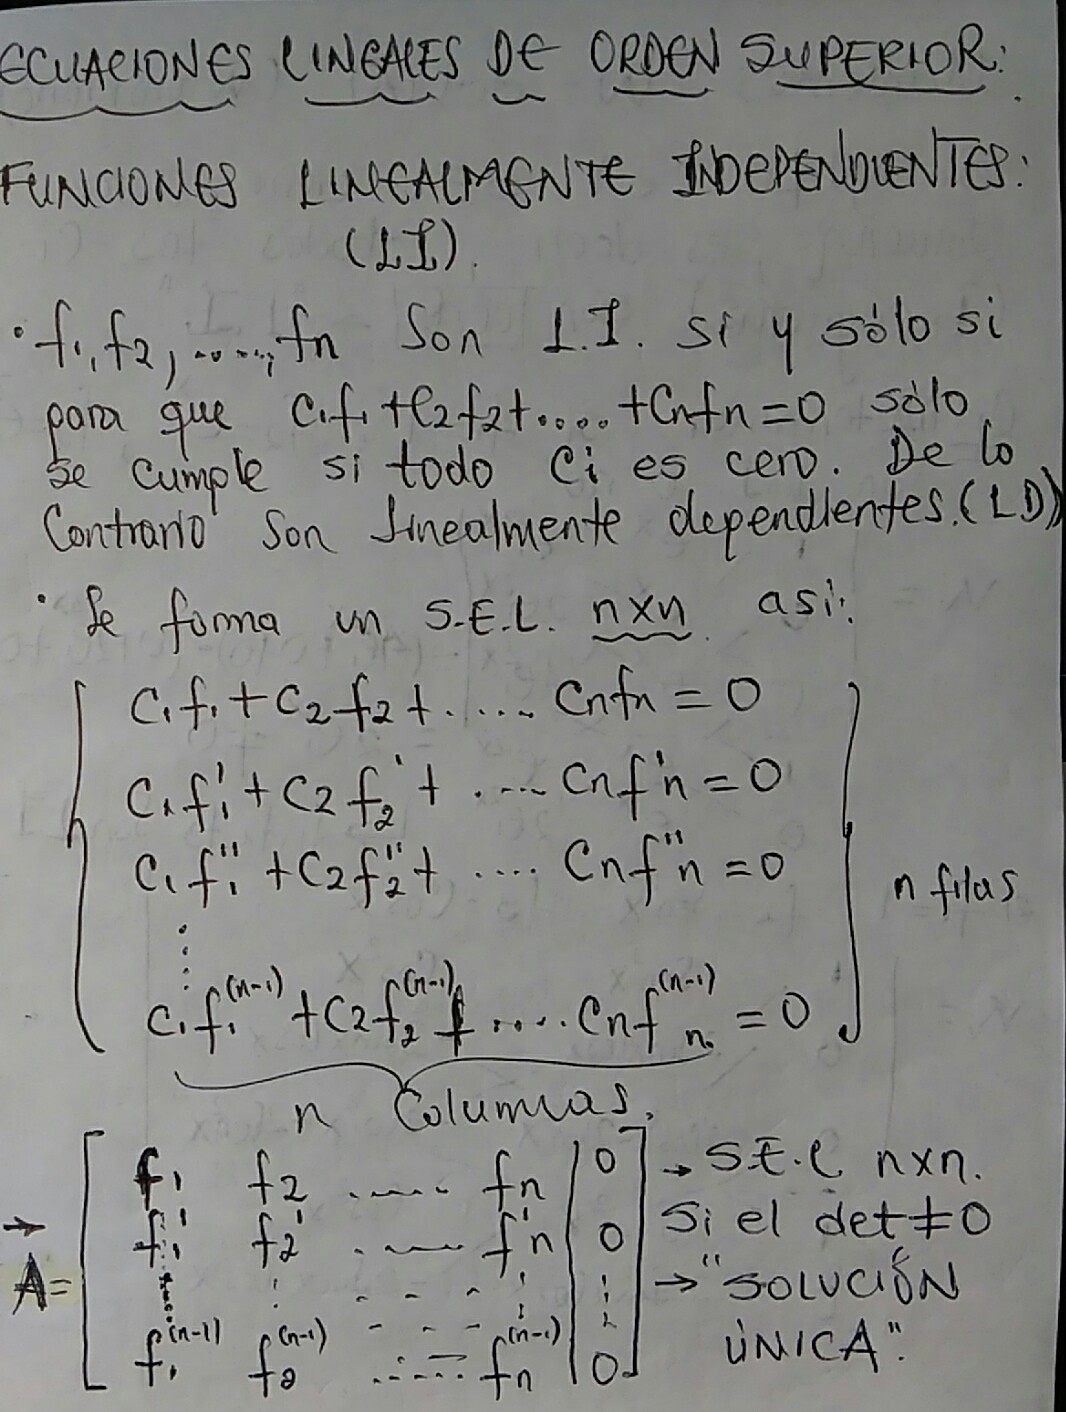 ECUACIONES LINEALES DE ORDEN SUPERIOR:
FUNCIONES LINEALMENTE INDEPENDIENTES:
(LI).
• f₁, f₂, ....., fn Son L.I. si y sólo si
para que C₁f₁ + C₂f₂ + .... + Cnfn = 0 sólo
se cumple si todo Ci es cero. De lo
Contrario son linealmente dependientes. (LD)
• Se forma un S.E.L. nxn así:
C₁f₁ + C₂f₂ + ..... Cnfn = 0
C₁f₁' + C₂f₂' + .... Cnf'n = 0
C₁f₁'' + C₂f₂'' + .... Cnf''n = 0
n filas
C₁f₁⁽ⁿ⁻¹⁾ + C₂f₂⁽ⁿ⁻¹⁾ + .... Cnfn⁽ⁿ⁻¹⁾ = 0
n Columnas.
f₁ f₂ ..... fn | 0 → S.E.L nxn.
f₁' f₂' ..... f'n | 0 Si el det ≠ 0
A = ⋮ ⋮ .... ⋮ | ⋮ → "SOLUCIÓN
f₁⁽ⁿ⁻¹⁾ f₂⁽ⁿ⁻¹⁾ ..... fn⁽ⁿ⁻¹⁾ | 0 ÚNICA".